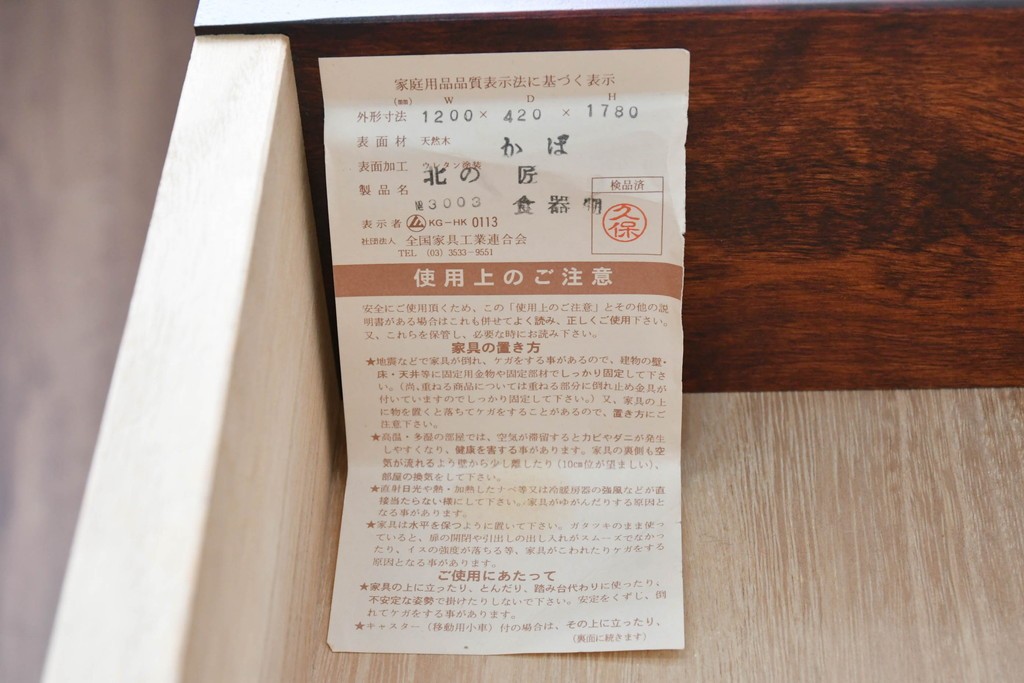 家庭用品品質表示法に基づく表示
(㎜) W D H
外形寸法 1200 × 420 × 1780
表面材 天然木 かば
表面加工 ウレタン塗装
製品名 北の匠
№3003 食器棚
検品済
久保
表示者 KG-HK 0113
社団法人 全国家具工業連合会
TEL (03) 3533-9551
使用上のご注意
安全にご使用頂くため、この「使用上のご注意」とその他の説
明書がある場合はこれも併せてよく読み、正しくご使用下さい。
又、これらを保管し、必要な時にお読み下さい。
家具の置き方
★地震などで家具が倒れ、ケガをする事があるので、建物の壁・
床・天井等に固定用金物や固定部材でしっかり固定して下さ
い。(尚、重ねる商品については重ねる部分に倒れ止め金具が
付いていますのでしっかり固定して下さい。) 又、家具の上
に物を置くと落ちてケガをすることがあるので、置き方にご
注意下さい。
★高温・多湿の部屋では、空気が滞留するとカビやダニが発生
しやすくなり、健康を害する事があります。家具の裏側も空
気が流れるよう壁から少し離したり(10㎝位が望ましい)、
部屋の換気をして下さい。
★直射日光や熱・加熱したナベ等又は冷暖房器の強風などが直
接当たらない様にして下さい。家具がゆがんだりする原因と
なる事があります。
★家具は水平を保つように置いて下さい。ガタツキのまま使っ
ていると、扉の開閉や引出しの出し入れがスムーズでなかっ
たり、イスの強度が落ちる等、家具がこわれたりケガをする
原因となる事があります。
ご使用にあたって
★家具の上に立ったり、とんだり、踏み台代わりに使ったり、
不安定な姿勢で掛けたりしないで下さい。安定をくずし、倒
れてケガをする事があります。
★キャスター(移動用小車)付の場合は、その上に立ったり、
(裏面に続きます)